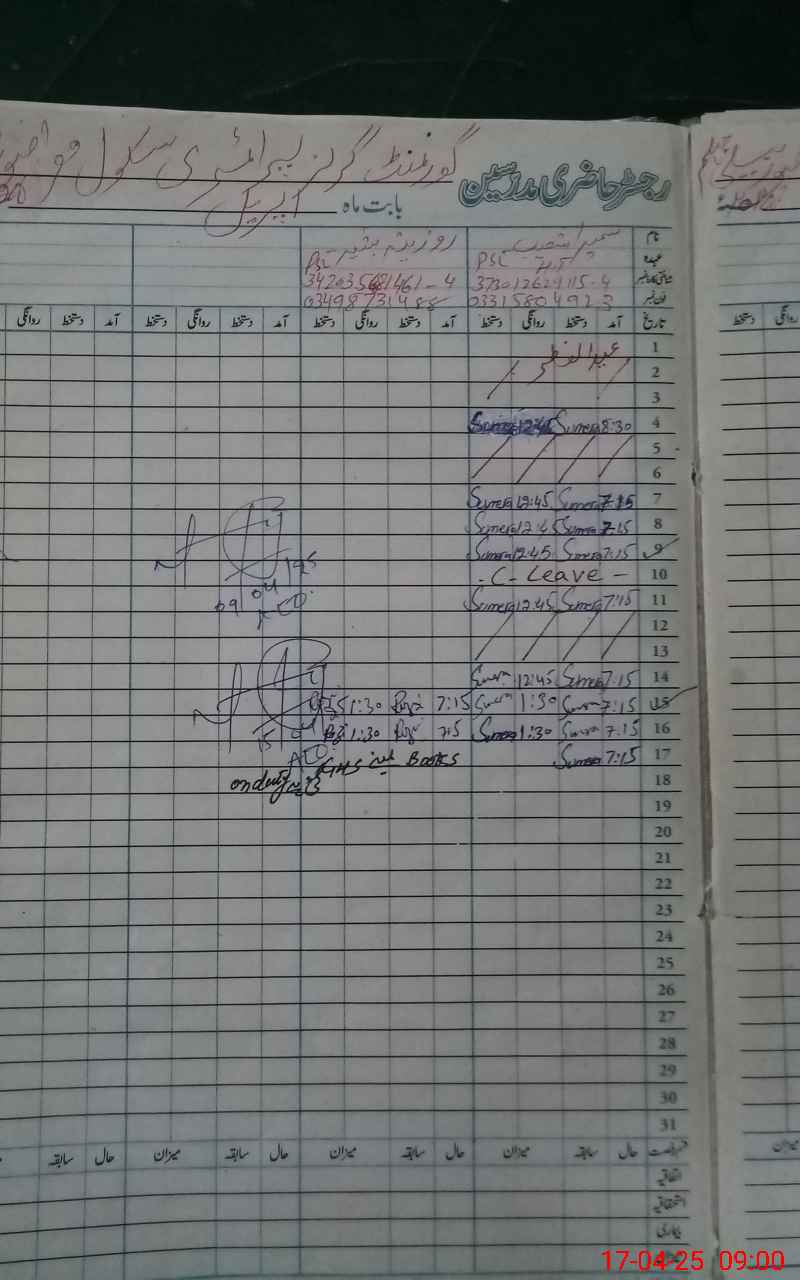 رجسٹر حاضری مدرسین گورنمنٹ گرلز پرائمری سکول
بابت ماہ اپریل
نام سمیرا شعیب روزینہ
عہدہ PST PST
373012629115-4
فون نمبر 03315804923
تاریخ آمد دستخط روانگی دستخط آمد دستخط روانگی دستخط آمد دستخط روانگی دستخط آمد دستخط روانگی
1 عید الفطر
2
3
4 8:30 Sumera 12:45
5
6
7 7:15 Sumera 12:45 Sumera
8 7:15 Sumera 12:45 Sumera
9 7:15 Sumera 12:45 Sumera
10 - C - Leave -
11 7:15 Sumera 12:45 Sumera
12
13
14 7:15 Sumera 12:45 Sumera
15 7:15 Sumera 1:30 Sumera 7:15 1:30
16 7:15 Sumera 1:30 Sumera 7:15 1:30
17 7:15 Sumera Books GHS
18 on duty
19
20
21
22
23
24
25
26
27
28
29
30
31
حال سابقہ میزان حال سابقہ میزان حال سابقہ میزان حال سابقہ
اتفاقیہ
استحقاقیہ
بیماری
09/04/25
AEO
15/04
AEO
دستخط روانگی
میزان
17-04-25 09:00